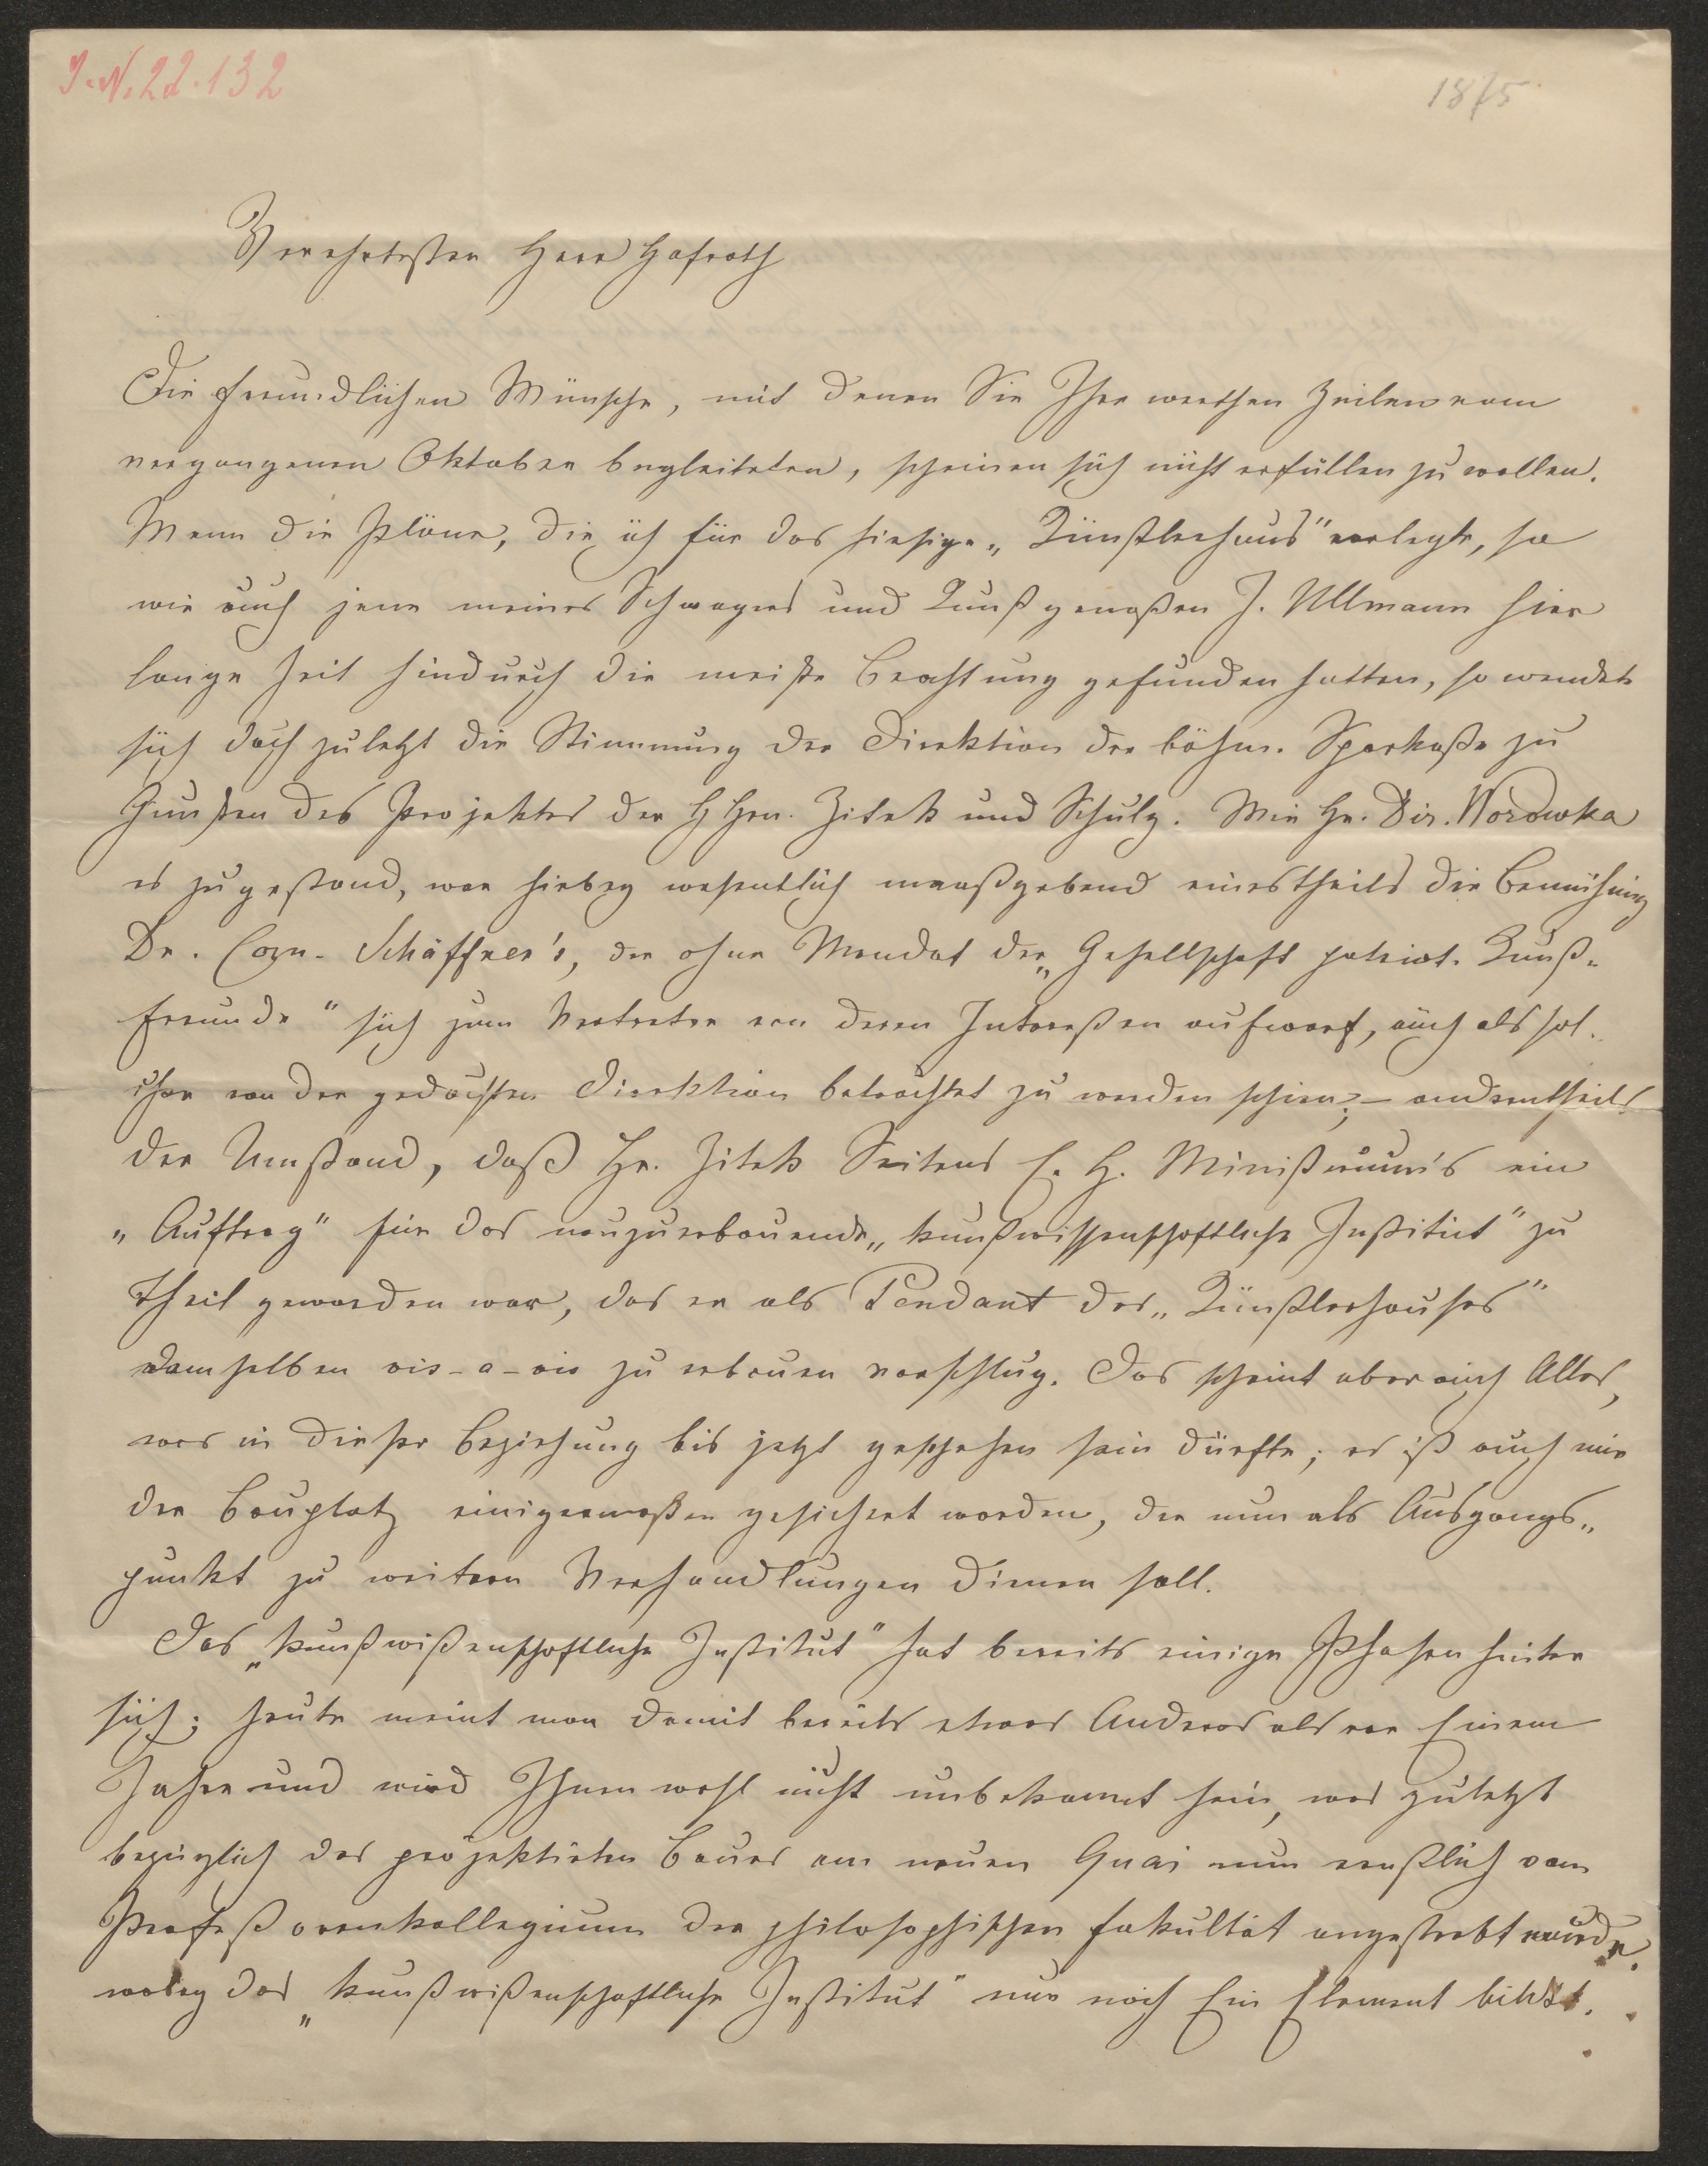 I.N. 22.132
1875
Verehrtester Herr Hofrath
Die freundlichen Wünsche, mit denen Sie Ihre werthen Zeilen vom
vergangenen Oktober begleiteten, scheinen sich nicht erfüllen zu wollen.
Wenn die Pläne, die ich für das hiesige „Künstlerhaus" vorlegte, so
wie auch jene meines Schwagers und Kunstgenoßen J. Ullmann hier
lange Zeit hindurch die meiste Beachtung gefunden hatten, so wendete
sich doch zuletzt die Stimmung der Direktion der böhm. Sparkaße zu
Gunsten des Projektes der HHrn. Zitek und Schulz. Wie Hr. Dir. Worowka
es zugestand, war hiebey wesentlich maaßgebend einestheils die Bemühung
Dr. Corn. Schäffner's, der ohne Mandat der „Gesellschaft patriot. Kunst-
freunde" sich zum Vertreter von deren Intereßen aufwarf, auch als sol-
cher von der gedachten Direktion betrachtet zu werden schien; – anderntheils
der Umstand, daß Hr. Zitek Seitens E. H. Ministerium's ein
„Auftrag" für das neuzuerbauende „kunstwissenschaftliche Institut" zu
Theil geworden war, das er als Pendant des „Künstlerhauses"
demselben vis-a-vis zu erbauen vorschlug. Das scheint aber auch Alles,
was in dieser Beziehung bis jetzt geschehen sein dürfte; es ist auch nur
der Bauplatz einigermaßen gesichert worden, der nun als Ausgangs-
punkt zu weitern Verhandlungen dienen soll.
Das „kunstwißenschaftliche Institut" hat bereits einige Phasen hinter
sich; heute meint man damit bereits etwas Anderes als vor Einem
Jahre und wird Ihnen wohl nicht unbekannt sein, was zuletzt
bezüglich des projektirten Baues am neuen Quai nun ernstlich vom
Profeßorenkollegium der philosophischen Fakultät angestrebt wurde,
wobey das „kunstwißenschaftliche Institut" nur noch Ein Element bildet.